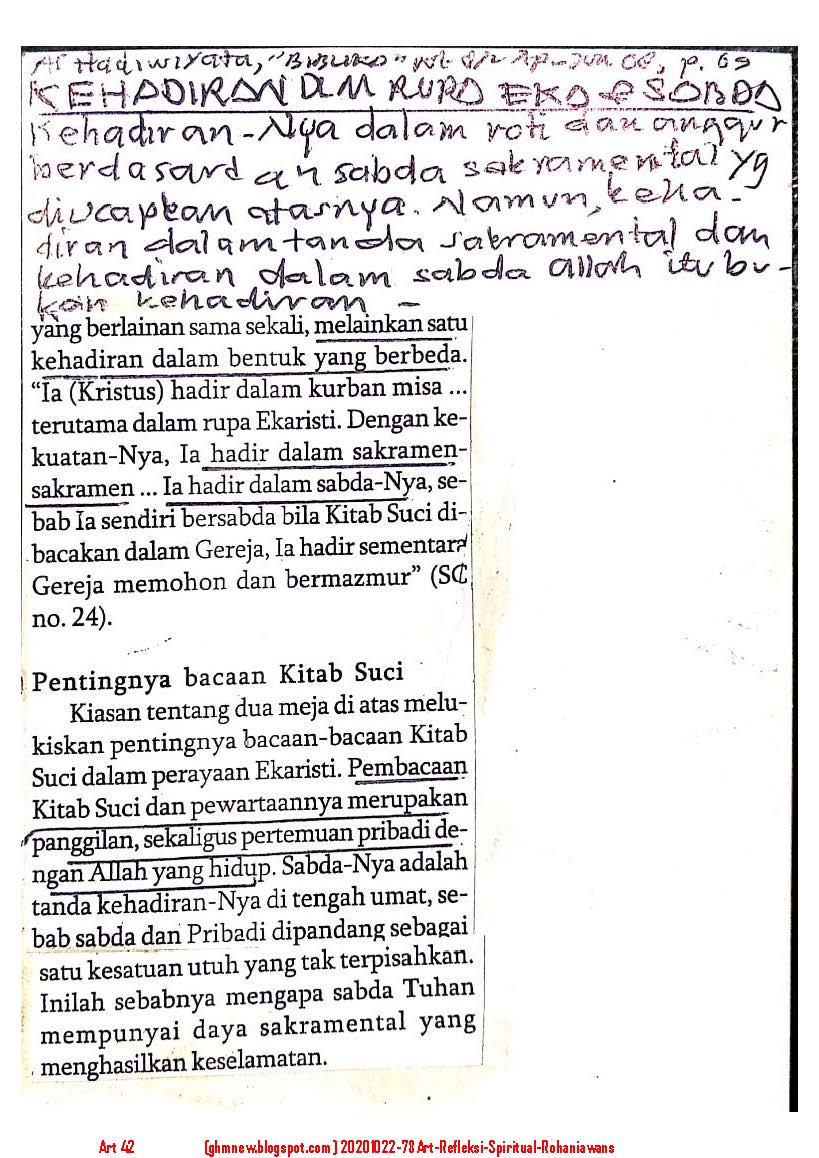 Hadiwiyata, "BIBLIKA" p. 69
KEHADIRAN DLM RUPA EKA & SABDA
Kehadiran-Nya dalam roti dan anggur
berdasarkan sabda sakramental yg
diucapkan atasnya. Namun, keha-
diran dalam tanda sakramental dan
kehadiran dalam sabda Allah itu bu-
kan kehadiran -
yang berlainan sama sekali, melainkan satu
kehadiran dalam bentuk yang berbeda.
“Ia (Kristus) hadir dalam kurban misa ...
terutama dalam rupa Ekaristi. Dengan ke-
kuatan-Nya, Ia hadir dalam sakramen-
sakramen ... Ia hadir dalam sabda-Nya, se-
bab Ia sendiri bersabda bila Kitab Suci di-
bacakan dalam Gereja, Ia hadir sementara
Gereja memohon dan bermazmur” (SC
no. 24).
Pentingnya bacaan Kitab Suci
Kiasan tentang dua meja di atas melu-
kiskan pentingnya bacaan-bacaan Kitab
Suci dalam perayaan Ekaristi. Pembacaan
Kitab Suci dan pewartaannya merupakan
panggilan, sekaligus pertemuan pribadi de-
ngan Allah yang hidup. Sabda-Nya adalah
tanda kehadiran-Nya di tengah umat, se-
bab sabda dan Pribadi dipandang sebagai
satu kesatuan utuh yang tak terpisahkan.
Inilah sebabnya mengapa sabda Tuhan
mempunyai daya sakramental yang
menghasilkan keselamatan.
Art 42 (ghmnew.blogspot.com) 20201022-78 Art-Refleksi-Spiritual-Rohaniawans